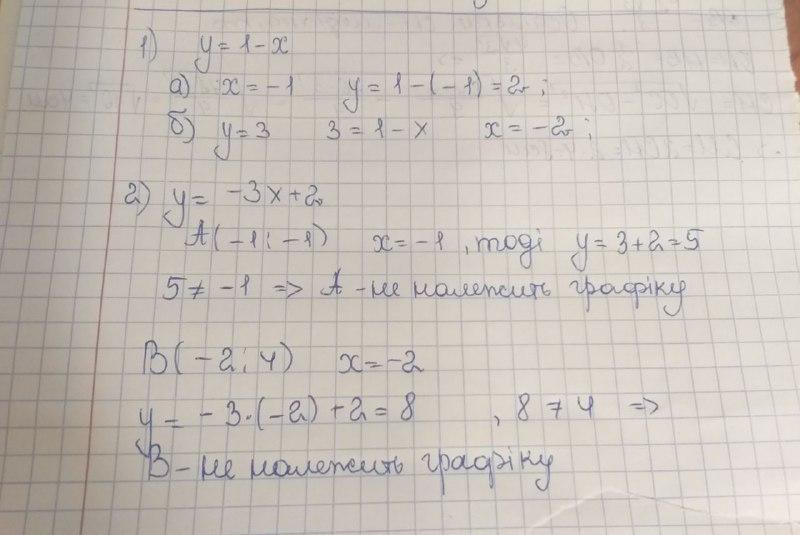 1) y = 1 - x
а) x = -1 y = 1 - (-1) = 2 ;
б) y = 3 3 = 1 - x x = -2 ;
2) y = -3x + 2
A(-1; -1) x = -1 , тоді y = 3 + 2 = 5
5 ≠ -1 => A - не належить графіку
B(-2; 4) x = -2
y = -3·(-2) + 2 = 8 , 8 ≠ 4 =>
B - не належить графіку